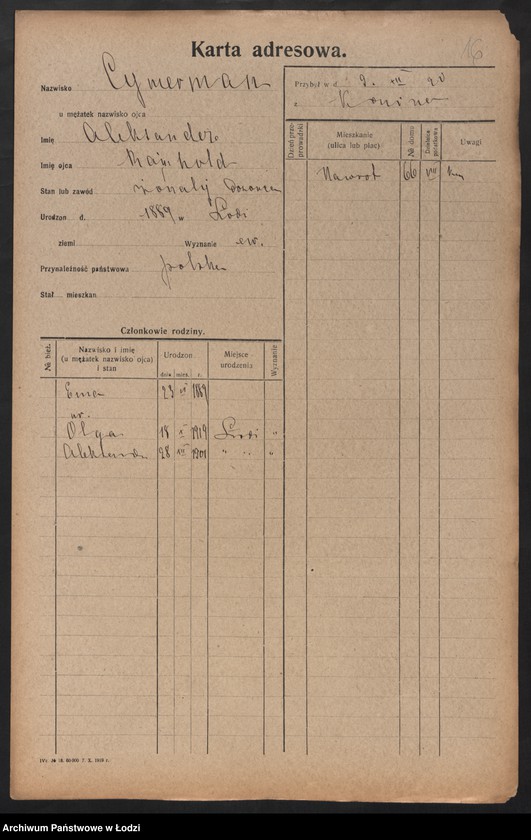 16
Karta adresowa.
Nazwisko Cymerman
u mężatek nazwisko ojca
Imię Aleksander
Imię ojca Rajnhold
Stan lub zawód żonaty
Urodzon d. 1889 w Łodzi
ziemi Wyznanie ew.
Przynależność państwowa polska
Stał. mieszkan.
Przybył w d. 9. XII 20
z Konina
Dzień przeprowadzki
Mieszkanie (ulica lub plac)
№ domu
Dzielnica pocztowa
Uwagi
Nawrot 66 VII
Członkowie rodziny.
№ bież.
Nazwisko i imię (u mężatek nazwisko ojca) i stan
Urodzon.
dnia mies. r.
Miejsce urodzenia
Wyznanie
23 1889
Olga 18 1919 Łodzi "
28 VII " "
Archiwum Państwowe w Łodzi